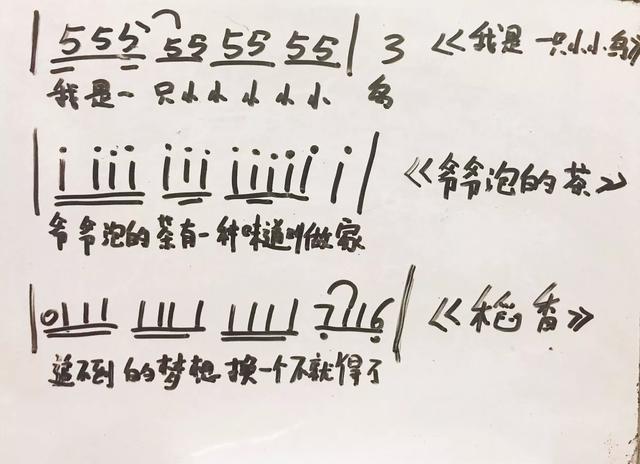 555 55 55 55 | 3 《我是一只小小鸟》
我是一只小小小小小 鸟
i iii iii iiiii i 《爷爷泡的茶》
爷爷泡的茶有一种味道叫做家
0111 1111 1111 7116 《稻香》
追不到的梦想换一个不就得了